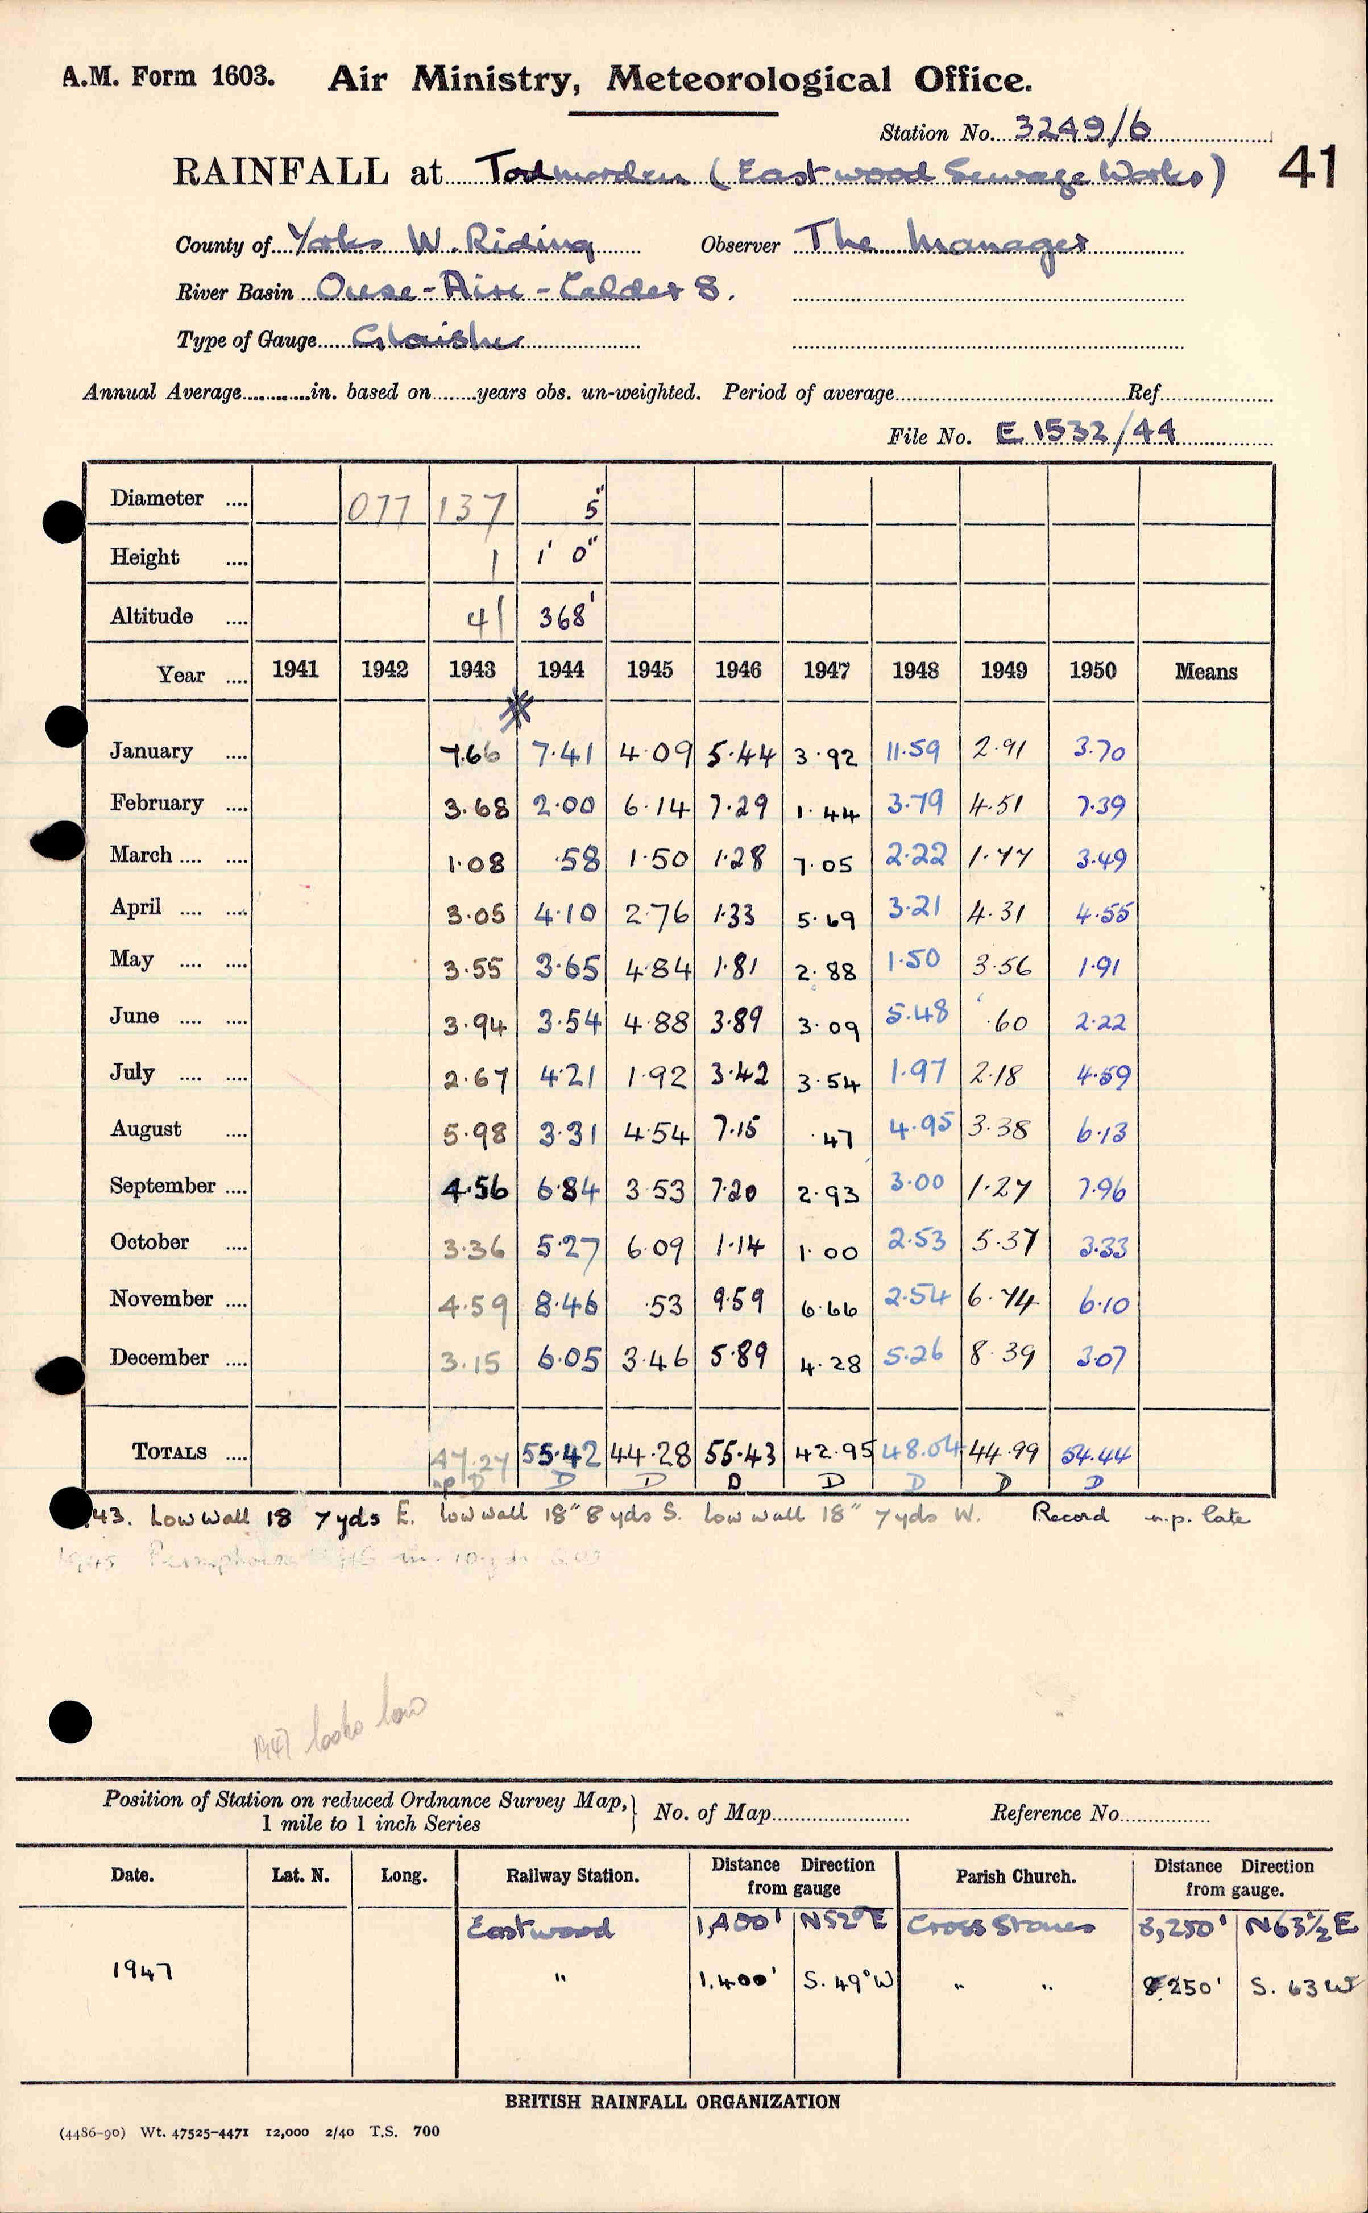 A.M. Form 1603. Air Ministry, Meteorological Office.
Station No. 3249/6
41
RAINFALL at Todmorden (Eastwood Sewage Works)
County of Yorks W. Riding Observer The Manager
River Basin Ouse-Aire-Calder 8.
Type of Gauge Glaisher
Annual Average............in. based on........years obs. un-weighted. Period of average........ Ref........
File No. E 1532/44
Diameter .... 077 137 5"
Height .... 1 1' 0"
Altitude .... 41 368'
Year .... 1941 1942 1943 1944 1945 1946 1947 1948 1949 1950 Means
January .... 7.66 7.41 4.09 5.44 3.92 11.59 2.91 3.70
February .... 3.68 2.00 6.14 7.29 1.44 3.79 4.51 7.39
March .... .... 1.08 .58 1.50 1.28 7.05 2.22 1.77 3.49
April .... .... 3.05 4.10 2.76 1.33 5.69 3.21 4.31 4.55
May .... .... 3.55 3.65 4.84 1.81 2.88 1.50 3.56 1.91
June .... .... 3.94 3.54 4.88 3.89 3.09 5.48 .60 2.22
July .... .... 2.67 4.21 1.92 3.42 3.54 1.97 2.18 4.59
August .... 5.98 3.31 4.54 7.15 .47 4.95 3.38 6.13
September .... 4.56 6.84 3.53 7.20 2.93 3.00 1.27 7.96
October .... 3.36 5.27 6.09 1.14 1.00 2.53 5.37 3.33
November .... 4.59 8.46 .53 9.59 6.66 2.54 6.74 6.10
December .... 3.15 6.05 3.46 5.89 4.28 5.26 8.39 3.07
TOTALS .... 47.27 55.42 44.28 55.43 42.95 48.04 44.99 54.44
np D D D D D D D D
43. Low wall 18 7 yds E. low wall 18" 8 yds S. low wall 18" 7 yds W. Record n.p. late
1945
1947 looks low
Position of Station on reduced Ordnance Survey Map, 1 mile to 1 inch Series } No. of Map........ Reference No........
Date. Lat. N. Long. Railway Station. Distance Direction from gauge Parish Church. Distance Direction from gauge.
Eastwood 1,400' N52°E Cross Stones 8,250' N63½E
1947 " 1,400' S. 49°W " " 8250' S. 63 W
BRITISH RAINFALL ORGANIZATION
(4486-90) Wt. 47525-4471 12,000 2/40 T.S. 700